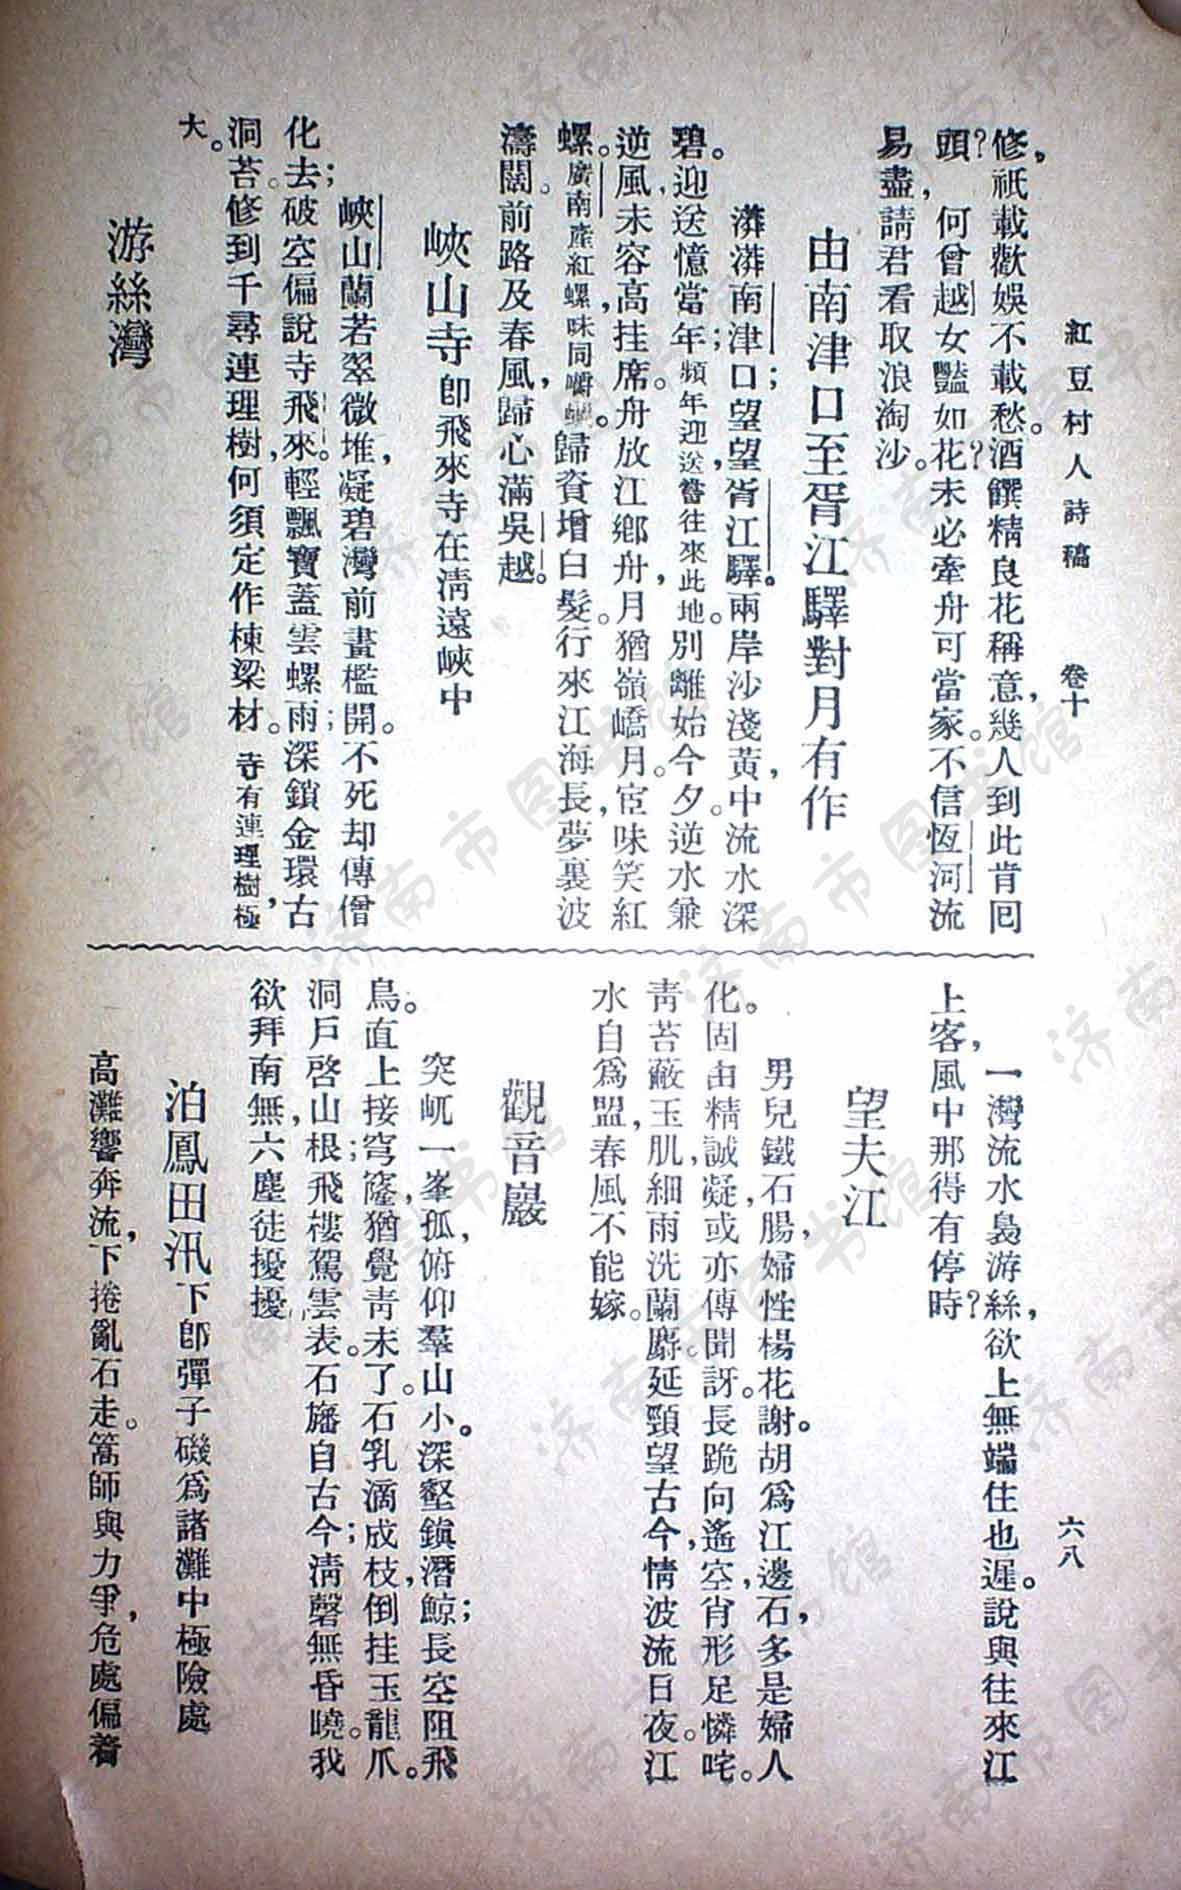 紅豆村人詩稿　卷十　六八
修，祇載歡娛不載愁。酒饌精良花稱意，幾人到此肯回
頭？何曾越女豔如花？未必牽舟可當家。不信恆河流
易盡，請君看取浪淘沙。
由南津口至胥江驛對月有作
漭漭南津口；望望胥江驛。兩岸沙淺黃，中流水深
碧。迎送憶當年；頻年迎送嘗往來此地。別離始今夕。逆水兼
逆風，未容高挂席。舟放江鄉舟，月猶嶺嶠月。宦味笑紅
螺。廣南產紅螺，味同嚼蠟。歸資增白髮。行來江海長，夢裏波
濤闊。前路及春風，歸心滿吳越。
峽山寺即飛來寺在清遠峽中
峽山蘭若翠微堆，凝碧灣前畫檻開。不死却傳僧
化去；破空偏說寺飛來。輕飄寶蓋雲螺雨；深鎖金環古
洞苔。修到千尋連理樹，何須定作棟梁材。寺有連理樹，極
大。
游絲灣
一灣流水裊游絲，欲上無端住也遲。說與往來江
上客，風中那得有停時？
望夫江
男兒鐵石腸，婦性楊花謝。胡爲江邊石，多是婦人
化。固由精誠凝，或亦傳聞訝。長跪向遙空，肖形足憐咤。
青苔蔽玉肌，細雨洗蘭麝。延頸望古今，情波流日夜。江
水自爲盟，春風不能嫁。
觀音巖
突屼一峯孤，俯仰羣山小。深壑鎮潛鯨；長空阻飛
鳥。直上接穹窿，猶覺青未了。石乳滴成枝，倒挂玉龍爪。
洞戶啓山根；飛樓駕雲表。石旛自古今；清磬無昏曉。我
欲拜南無，六塵徒擾擾。
泊鳳田汛下即彈子磯爲諸灘中極險處
高灘響奔流，下捲亂石走。篙師與力爭，危處偏着